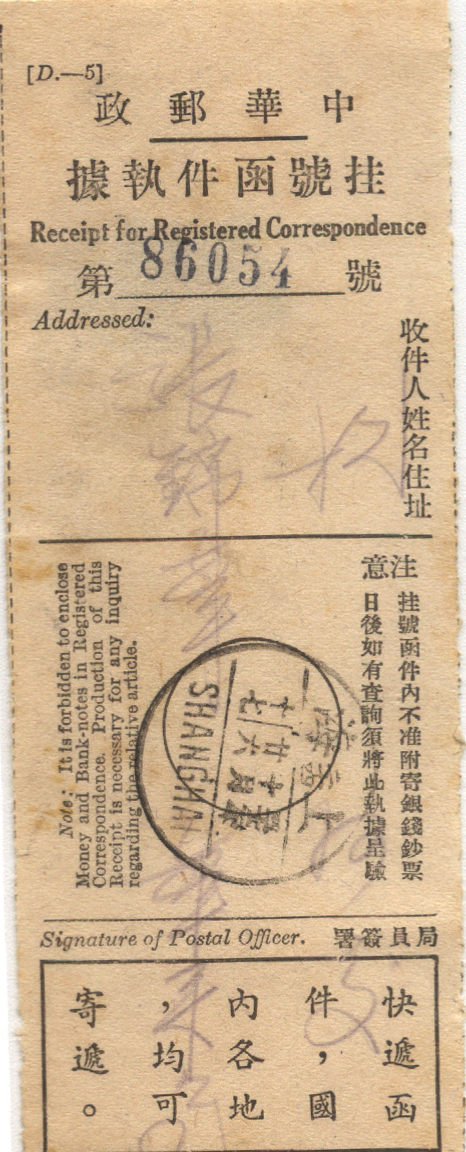 [D.—5]
中華郵政
挂號函件執據
Receipt for Registered Correspondence
第 86054 號
Addressed:
收件人姓名住址
注意
挂號函件內不准附寄銀錢鈔票
日後如有查詢須將此執據呈驗
Note: It is forbidden to enclose
Money and Bank-notes in Registered
Correspondence. Production of this
Receipt is necessary for any inquiry
regarding the relative article.
SHANGHAI
Signature of Postal Officer.
局員簽署
快遞函
件,國
內各地
,均可
寄遞。